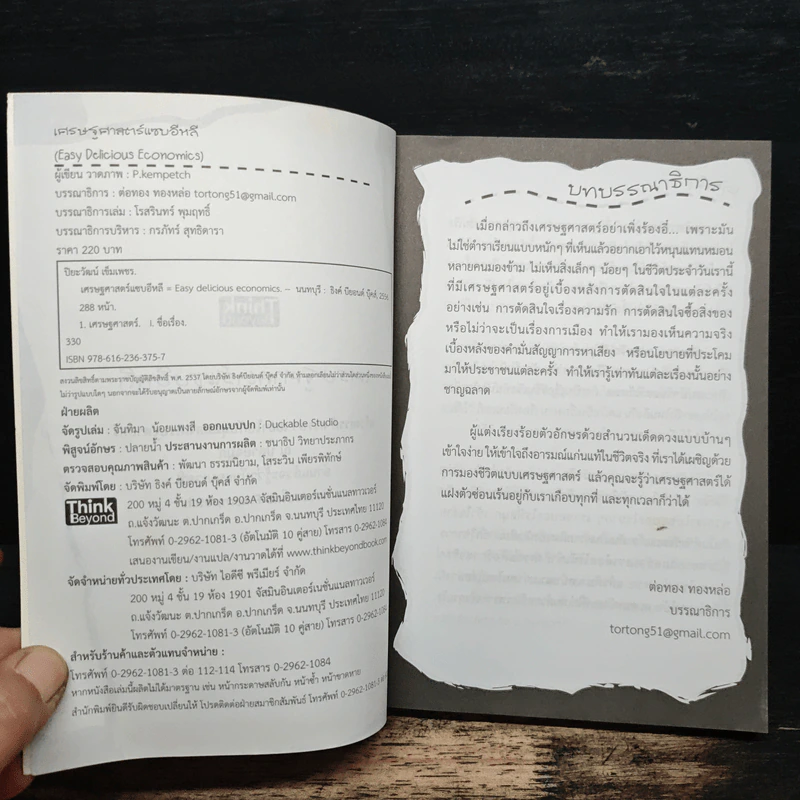 เศรษฐศาสตร์แซบอีหลี
(Easy Delicious Economics)
ผู้เขียน วาดภาพ : P.kempetch
บรรณาธิการ : ต่อทอง ทองหล่อ tortong51@gmail.com
บรรณาธิการเล่ม : โรสรินทร์ พุมฤทธิ์
บรรณาธิการบริหาร : กรภัทร์ สุทธิดารา
ราคา 220 บาท
ปิยะวัฒน์ เข็มเพชร.
เศรษฐศาสตร์แซบอีหลี = Easy delicious economics. – นนทบุรี : ธิงค์ บียอนด์ บุ๊คส์,
288 หน้า.
1. เศรษฐศาสตร์. I. ชื่อเรื่อง.
330
ISBN 978-616-236-375-7
สงวนลิขสิทธิ์ตามพระราชบัญญัติลิขสิทธิ์ พ.ศ. 2537 โดยบริษัท ธิงค์บียอนด์ บุ๊คส์ จำกัด ห้ามลอกเลียนไม่ว่าส่วนใดส่วนหนึ่งของหนังสือเล่มนี้
ไม่ว่ารูปแบบใดๆ นอกจากจะได้รับอนุญาตเป็นลายลักษณ์อักษรจากผู้จัดพิมพ์เท่านั้น
ฝ่ายผลิต
จัดรูปเล่ม : จันทิมา น้อยแพงสี ออกแบบปก : Duckable Studio
พิสูจน์อักษร : ปลายน้ำ ประสานงานการผลิต : ชนาธิป วิทยาประภากร
ตรวจสอบคุณภาพสินค้า : พัฒนา ธรรมนิยาม, โสระวิน เพียรพิทักษ์
จัดพิมพ์โดย : บริษัท ธิงค์ บียอนด์ บุ๊คส์ จำกัด
Think
Beyond
200 หมู่ 4 ชั้น 19 ห้อง 1903A จัสมินอินเตอร์เนชั่นแนลทาวเวอร์
ถ.แจ้งวัฒนะ ต.ปากเกร็ด อ.ปากเกร็ด จ.นนทบุรี ประเทศไทย 11120
โทรศัพท์ 0-2962-1081-3 (อัตโนมัติ 10 คู่สาย) โทรสาร 0-2962-1084
เสนองานเขียน/งานแปล/งานวาดได้ที่ www.thinkbeyondbook.com
จัดจำหน่ายทั่วประเทศโดย : บริษัท ไอดีซี พรีเมียร์ จำกัด
200 หมู่ 4 ชั้น 19 ห้อง 1901 จัสมินอินเตอร์เนชั่นแนลทาวเวอร์
ถ.แจ้งวัฒนะ ต.ปากเกร็ด อ.ปากเกร็ด จ.นนทบุรี ประเทศไทย 11120
โทรศัพท์ 0-2962-1081-3 (อัตโนมัติ 10 คู่สาย) โทรสาร 0-2962-1084
สำหรับร้านค้าและตัวแทนจำหน่าย :
โทรศัพท์ 0-2962-1081-3 ต่อ 112-114 โทรสาร 0-2962-1084
หากหนังสือเล่มนี้ผลิตไม่ได้มาตรฐาน เช่น หน้ากระดาษสลับกัน หน้าซ้ำ หน้าขาดหาย
สำนักพิมพ์ยินดีรับผิดชอบเปลี่ยนให้ โปรดติดต่อฝ่ายสมาชิกสัมพันธ์ โทรศัพท์ 0-2962-1081-3
บทบรรณาธิการ
เมื่อกล่าวถึงเศรษฐศาสตร์อย่าเพิ่งร้องอี๋... เพราะมัน
ไม่ใช่ตำราเรียนแบบหนักๆ ที่เห็นแล้วอยากเอาไว้หนุนแทนหมอน
หลายคนมองข้าม ไม่เห็นสิ่งเล็กๆ น้อยๆ ในชีวิตประจำวันเรานี้
ที่มีเศรษฐศาสตร์อยู่เบื้องหลังการตัดสินใจในแต่ละครั้ง
อย่างเช่น การตัดสินใจเรื่องความรัก การตัดสินใจซื้อสิ่งของ
หรือไม่ว่าจะเป็นเรื่องการเมือง ทำให้เรามองเห็นความจริง
เบื้องหลังของคำมั่นสัญญาการหาเสียง หรือนโยบายที่ประโคม
มาให้ประชาชนแต่ละครั้ง ทำให้เรารู้เท่าทันแต่ละเรื่องนั้นอย่าง
ชาญฉลาด
ผู้แต่งเรียงร้อยตัวอักษรด้วยสำนวนเด็ดดวงแบบบ้านๆ
เข้าใจง่าย ให้เข้าใจถึงอารมณ์แก่นแท้ในชีวิตจริง ที่เราได้เผชิญด้วย
การมองชีวิตแบบเศรษฐศาสตร์ แล้วคุณจะรู้ว่าเศรษฐศาสตร์ได้
แฝงตัวซ่อนเร้นอยู่กับเราเกือบทุกที่ และทุกเวลาก็ว่าได้
ต่อทอง ทองหล่อ
บรรณาธิการ
tortong51@gmail.com